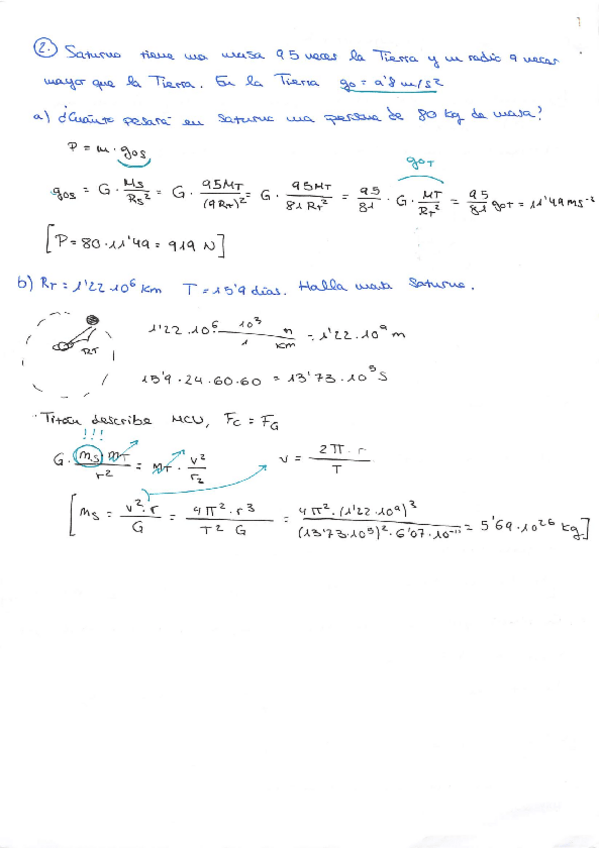 2. Saturno tiene una masa 95 veces la Tierra y un radio 9 veces
mayor que la Tierra. En la Tierra g₀ = 9'8 m/s²
a) ¿Cuánto pesará en Saturno una persona de 80 kg de masa?
P = m · g₀s
g₀T
g₀s = G · Ms/Rs² = G · 95MT/(9RT)² = G · 95MT/81RT² = 95/81 · G · MT/RT² = 95/81 g₀T = 11'49 ms⁻²
[P = 80 · 11'49 = 919 N]
b) RT = 1'22·10⁶ km T = 15'9 días. Halla masa Saturno.
RT
1'22 · 10⁶ · 10³/1 m/km = 1'22·10⁹ m
15'9 · 24 · 60 · 60 = 13'73 · 10⁵ s
· Titán describe MCU, Fc = FG
!!!
G · ms · mT/r² = mT · v²/r₂ v = 2π · r/T
[ms = v² · r/G = 4π² · r³/T² G = 4π² · (1'22·10⁹)³/(13'73·10⁵)² · 6'07·10⁻¹¹ = 5'69·10²⁶ kg.]